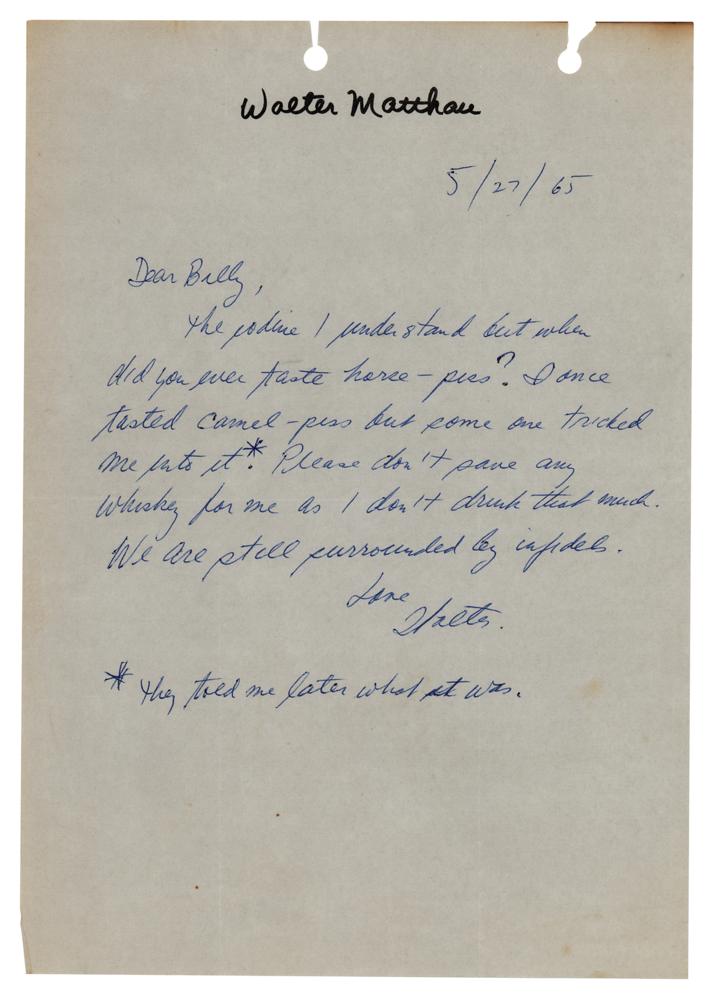 Walter Matthau
5/27/65
Dear Billy,
The iodine I understand but when
did you ever taste horse-piss? I once
tasted camel-piss but some one tricked
me into it*. Please don't save any
whiskey for me as I don't drink that much.
We are still surrounded by infidels.
Love
Walter.
* They told me later what it was.